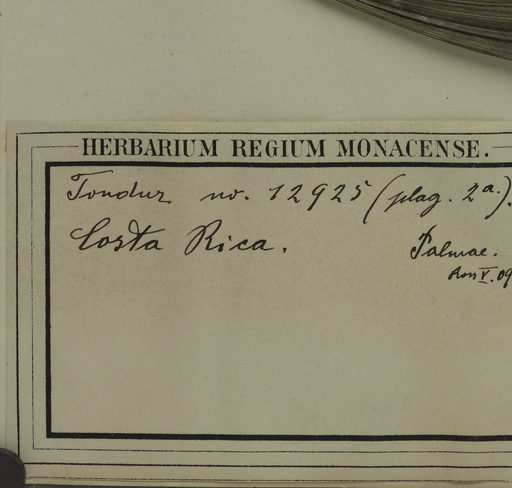 HERBARIUM REGIUM MONACENSE.
Tonduz no. 12925 (plag. 2a.).
Costa Rica.
Palmae.
V. 09